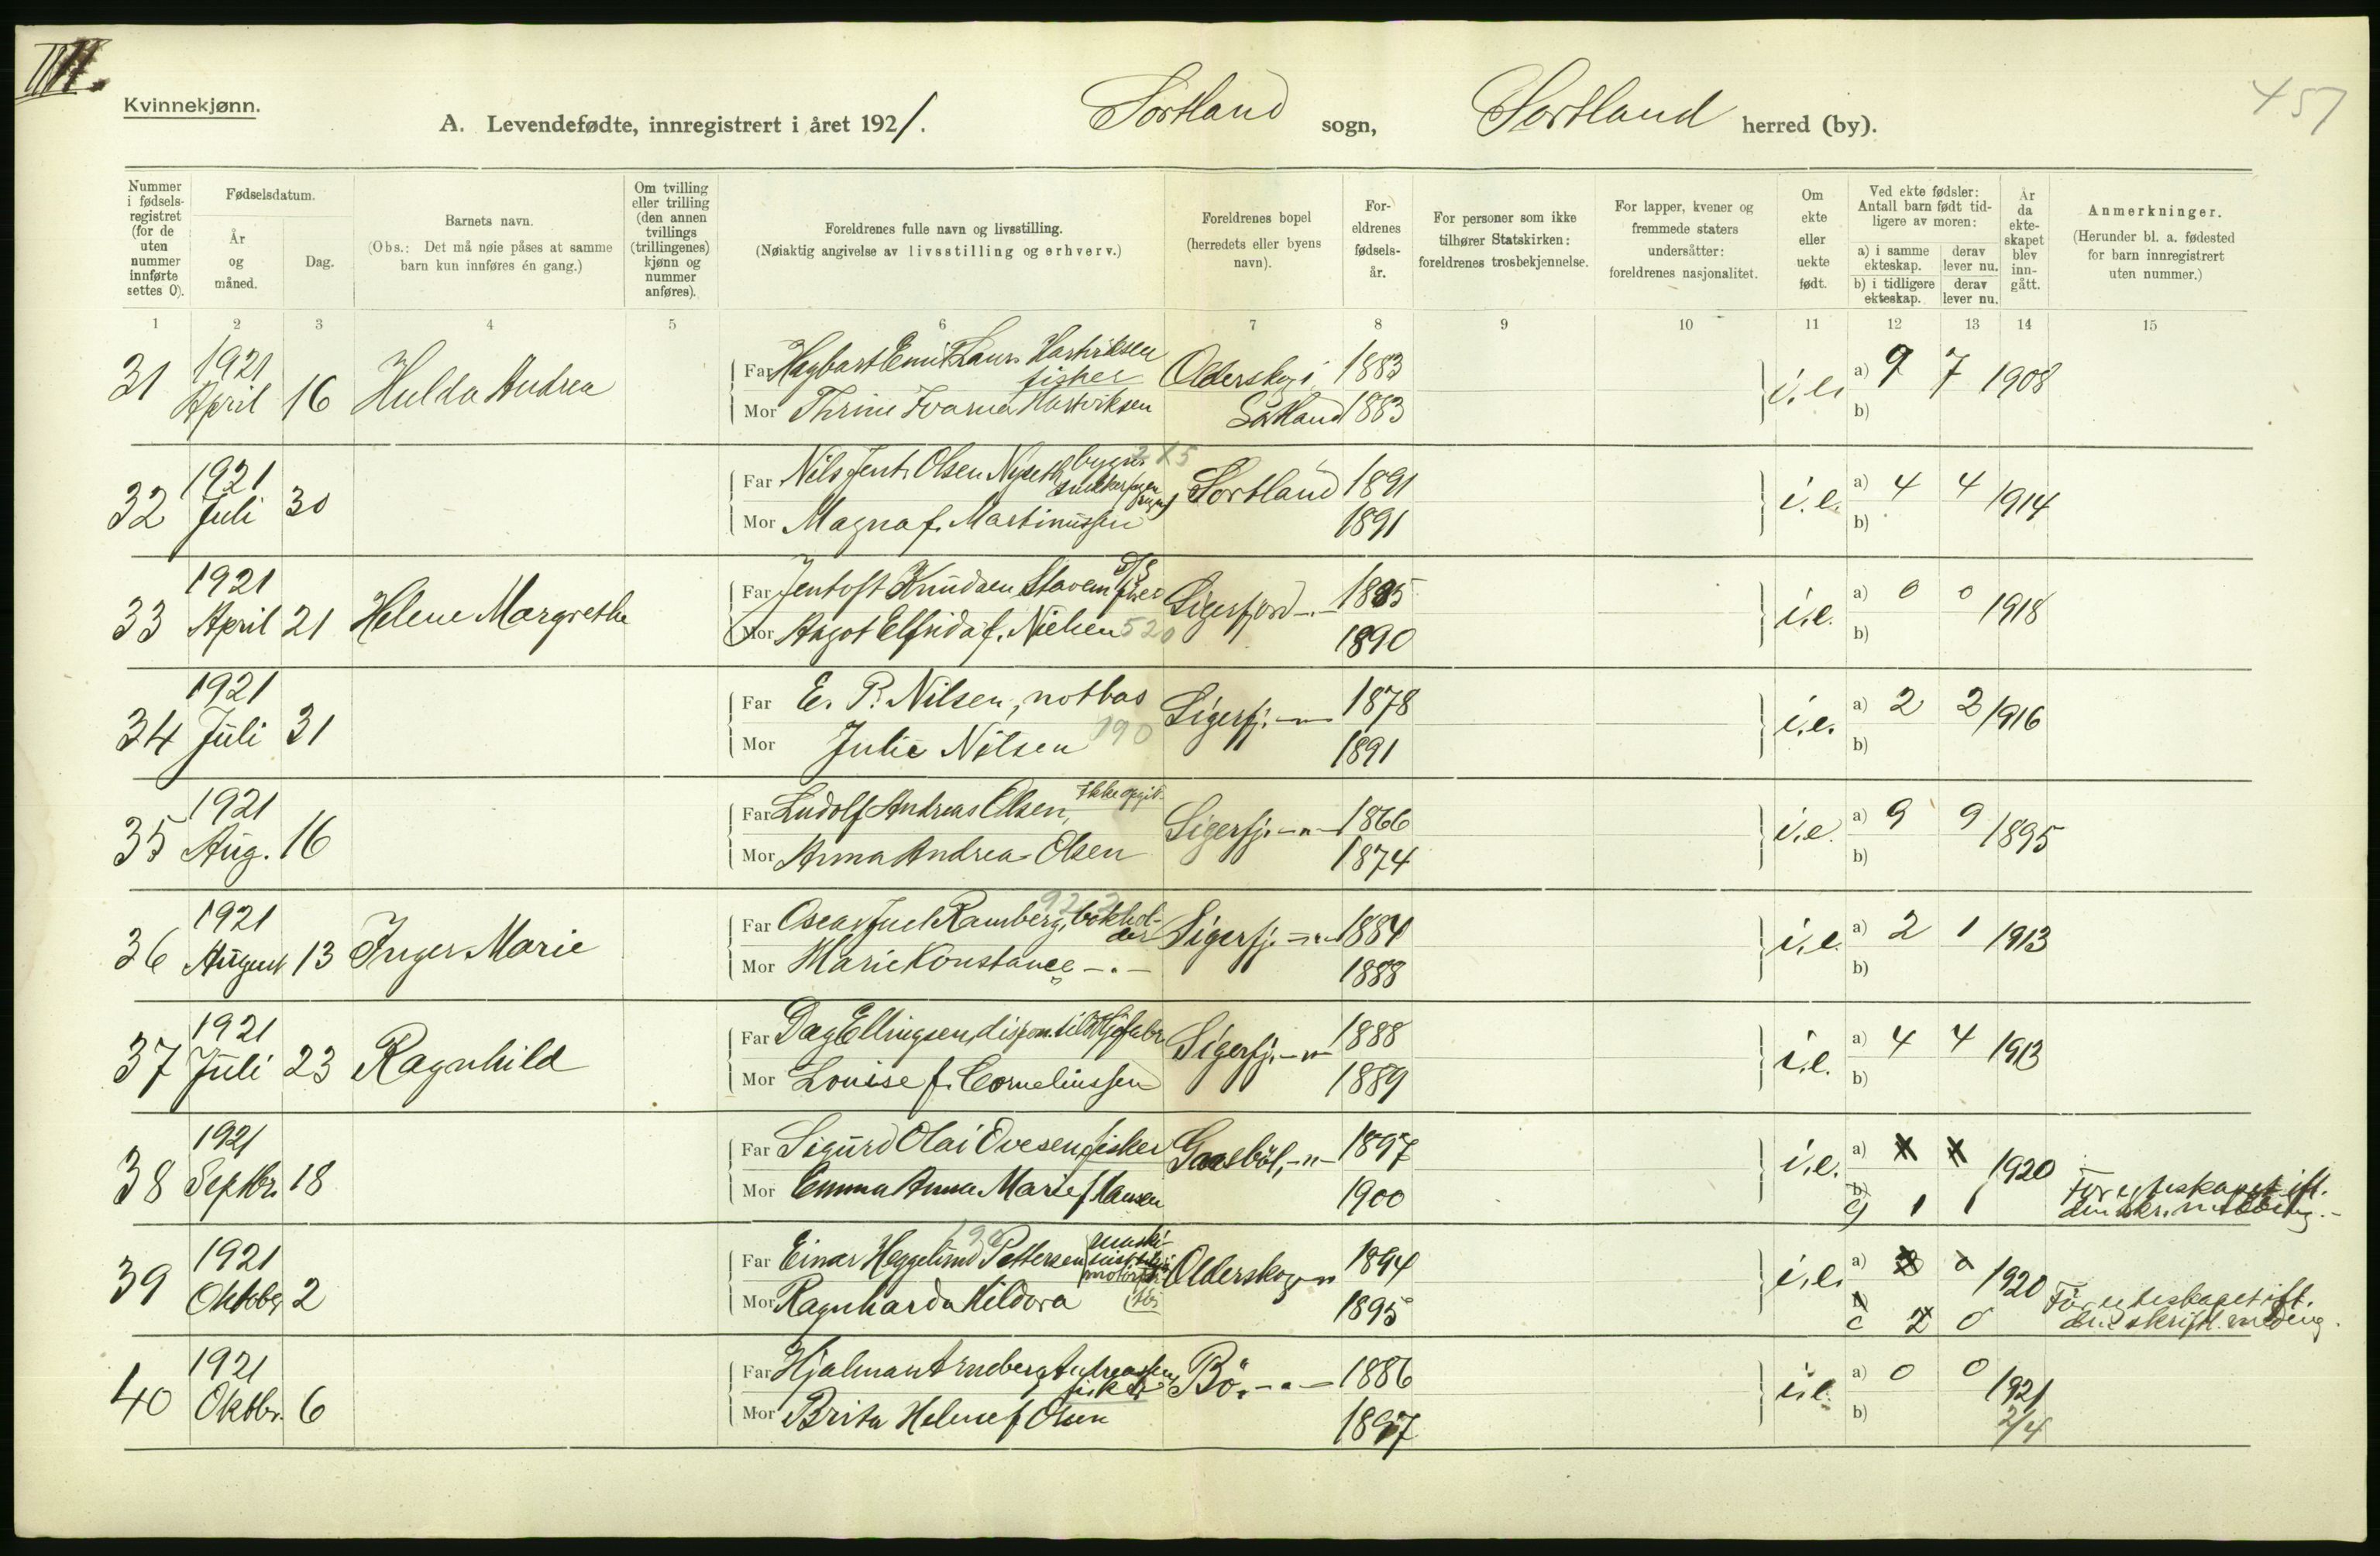 III.
457
Kvinnekjønn.
A. Levendefødte, innregistrert i året 1921. Sortland sogn, Sortland herred (by).
Nummer i fødselsregistret (for de uten nummer innførte settes 0).
Fødselsdatum.
År og måned.
Dag.
Barnets navn.
(Obs.: Det må nøie påses at samme barn kun innføres én gang.)
Om tvilling eller trilling (den annen tvillings (trillingenes) kjønn og nummer anføres).
Foreldrenes fulle navn og livsstilling.
(Nøiaktig angivelse av livsstilling og erhverv.)
Foreldrenes bopel (herredets eller byens navn).
Foreldrenes fødselsår.
For personer som ikke tilhører Statskirken: foreldrenes trosbekjennelse.
For lapper, kvener og fremmede staters undersåtter: foreldrenes nasjonalitet.
Om ekte eller uekte født.
Ved ekte fødsler: Antall barn født tidligere av moren:
a) i samme ekteskap. derav lever nu.
b) i tidligere ekteskap. derav lever nu.
År da ekteskapet blev inngått.
Anmerkninger.
(Herunder bl. a. fødested for barn innregistrert uten nummer.)
1 2 3 4 5 6 7 8 9 10 11 12 13 14 15
31 1921 April 16 Hulda Andrea
Far Hagbart Emil Laur. Hartviksen fisker Olderskog i 1883
Mor Thrine Ivarna Hartviksen Sortland 1883
i.e. a) 9 7 1908
b)
32 1921 Juli 30
Far Nils Jent. Olsen Nyseth 215 Sortland 1891
Mor Magna f. Martinussen 1891
i.e. a) 4 4 1914
b)
33 1921 April 21 Helene Margrethe
Far Jentoft Knudsen Stavem Sigerfjord -"- 1885
Mor Aagot Elfrida f. Nielsen 520 1890
i.e. a) 0 0 1918
b)
34 1921 Juli 31
Far E. P. Nilsen, notbas Sigerfj. -"- 1878
Mor Julie Nilsen 190 1891
i.e. a) 2 2 1916
b)
35 1921 Aug. 16
Far Ludolf Andreas Olsen, ikke opgit. Sigerfj. -"- 1866
Mor Anna Andrea Olsen 1874
i.e. a) 9 9 1895
b)
36 1921 August 13 Inger Marie
Far Oscar Juel Ramberg, bokholder Sigerfj. -"- 1884
Mor Marie Konstance -"- 1888
i.e. a) 2 1 1913
b)
37 1921 Juli 23 Ragnhild
Far Dag Ellingsen, dispon. Sigerfj. -"- 1888
Mor Louise f. Corneliussen 1889
i.e. a) 4 4 1913
b)
38 1921 Septbr. 18
Far Sigurd Olai Ovesen, fisker Gaasböl, -"- 1897
Mor Emma Anna Marie f. Hansen 1900
i.e. a) 1920
b)
c) 1 1 Før ekteskapet ifl. skr. meddelelse
39 1921 Oktober 2
Far Einar Heggelund Pettersen Olderskog -"- 1894
Mor Ragnharda Hildora 1895
i.e. a) 1920
b
c 2 0 Før ekteskapet ifl. skriftl. melding.
40 1921 Oktbr. 6
Far Hjalmar Arneberg Andreassen, fisker Bö. -"- 1886
Mor Brita Helene f. Olsen 1897
i.e. a) 0 0 1921 2/4
b)